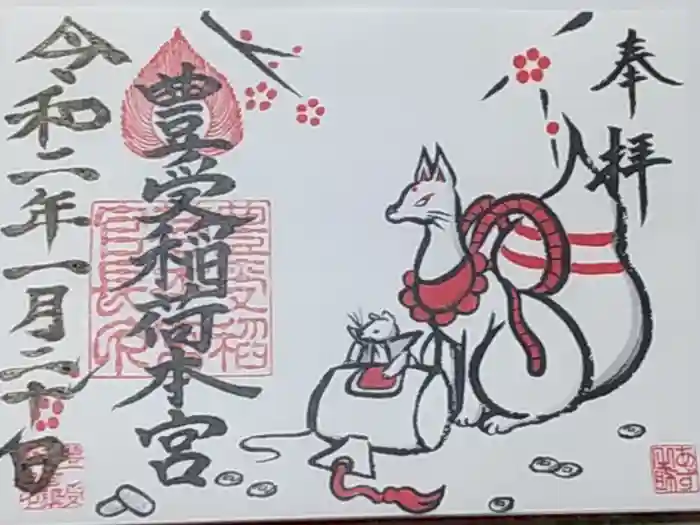 奉拝
豊受稲荷本宮
令和二年一月二十日